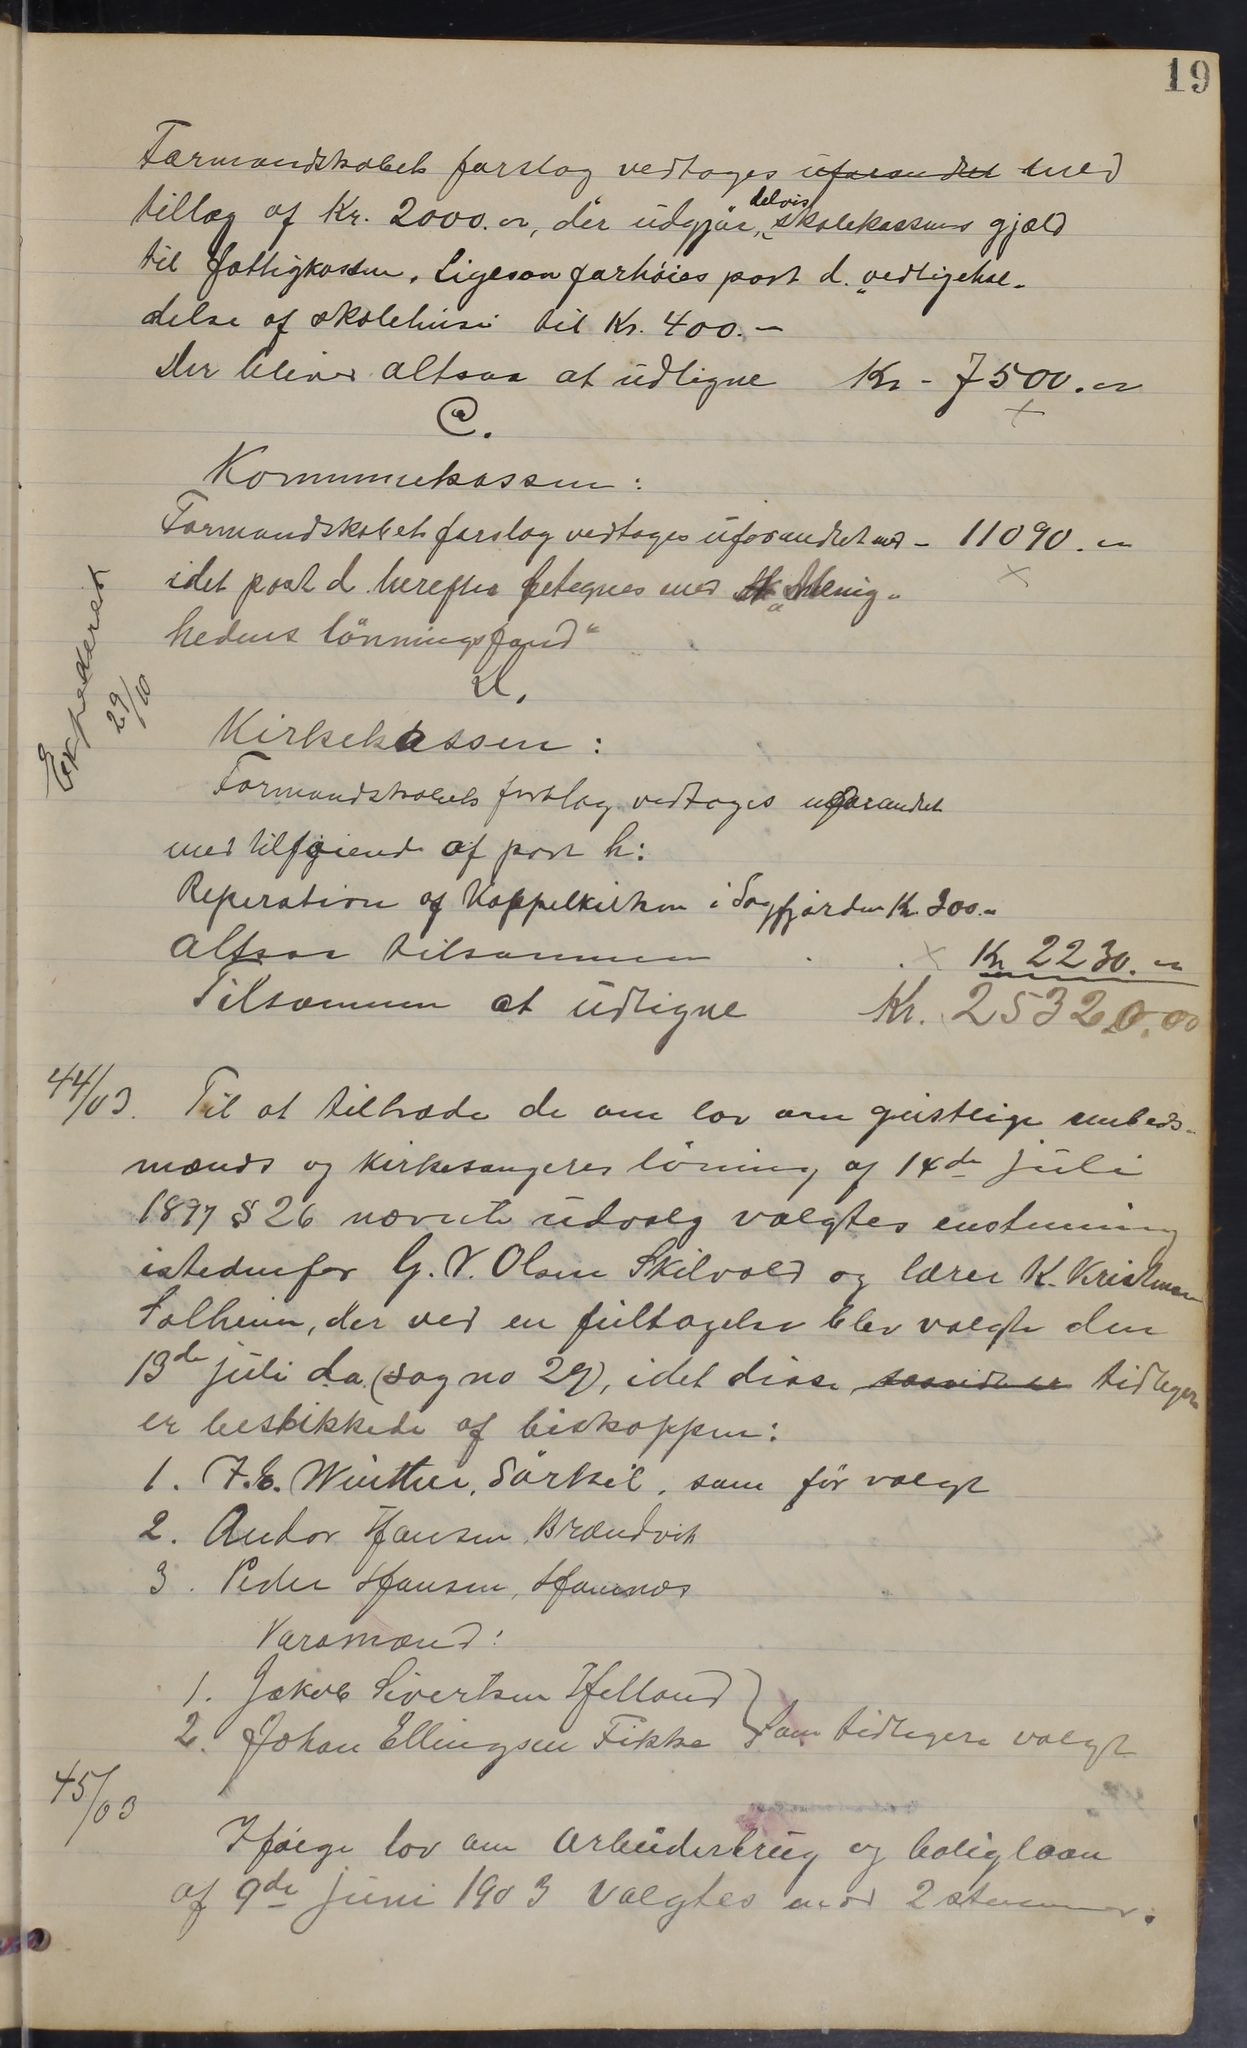 19
Formandskabets forslag vedtages uforandret med
tillæg af Kr. 2000.00, der udgjör delvis skolekassens gjæld
til fattigkassen. Ligesaa forhöies post d. "vedligehol-
delse af skolehuse til Kr. 400.-
Der bliver altsaa at udligne Kr - 7500.00
C.
Kommunekassen:
Formandskabets forslag vedtages uforandret med - 11090.00
idet post d herefter betegnes med "Menig-
hedens lönningsfond"
Expederet
29/10
D.
Kirkekassen:
Formandskabets forslag vedtages uforandret
med tilföiende af post h:
Reperation af Kappelkirken i Sagfjorden Kr. 300.00
Altsaa tilsammen Kr 2230.00
Tilsammen at udligne Kr. 25320.00
44/03. Til at tiltræde de om lov om geistlige embeds-
mænds og kirkesangeres lönning af 14de juli
1897 § 26 nævnte udvalg valgtes enstemmig
istedenfor G. V. Olsen Skilvald og lærer K. Kristensen
Solheim, der ved en feiltagelse blev valgte den
13de juli d.a. (sag no 29), idet disse tidligere
er beskikkede af biskoppen:
1. F.C. Winther, Sörkil, som för valgt
2. Andor Hansen, Brændvik
3. Peder Hansen, Hamnes
Varamænd:
1. Jakob Sivertsen Helland
2. Johan Ellingsen Fikke } som tidligere valgt
45/03
Ifölge lov om Arbeiderbrug og boliglaan
af 9de juni 1903 valgtes mod 2 stemmer.